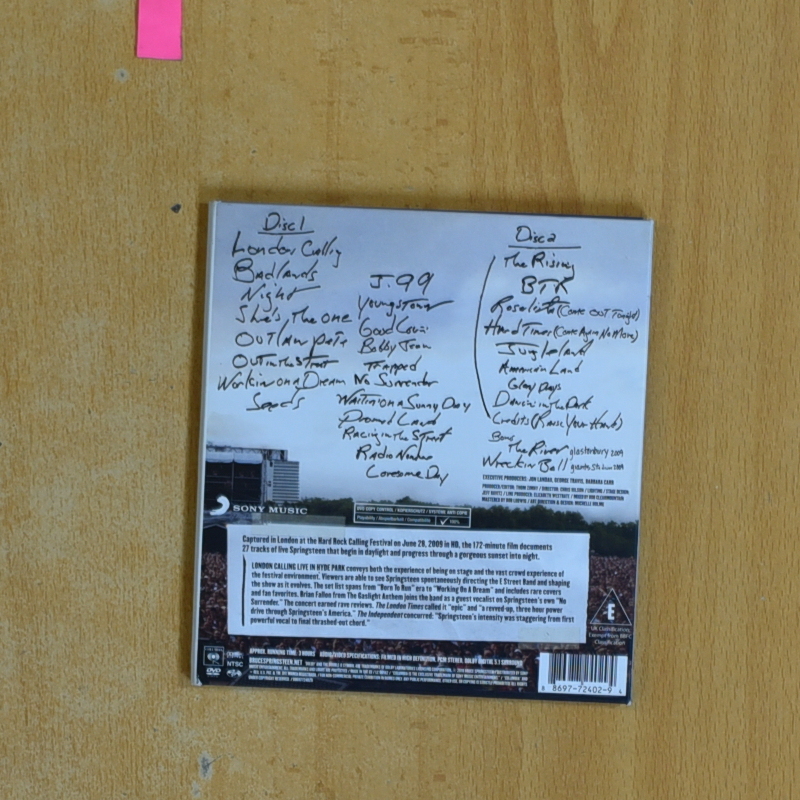 Disc 1
London Calling
Badlands
Night
She's the one
OUTlaw Pete
OUT in the Street
Workin on a Dream
Seeds
J. 99
Youngstown
Good Lovin
Bobby Jean
Trapped
No Surrender
Waitin on a Sunny Day
Promised Land
Racing in the Street
Radio Nowhere
Lonesome Day
Disc 2
The Rising
BTR
Rosalita (Come OUT Tonight)
Hard Times (Come Again No More)
Jungleland
American Land
Glory Days
Dancin in the Dark
Credits (Raise Your Hand)
Bonus
The River glastonbury 2009
Wreckin Ball giants stadium 2009
EXECUTIVE PRODUCERS: JON LANDAU, GEORGE TRAVIS, BARBARA CARR
PRODUCER/EDITOR: THOM ZIMNY / DIRECTOR: CHRIS HILSON / LIGHTING / STAGE DESIGN:
JEFF RAVITZ / LINE PRODUCER: ELIZABETH WESTRATE / MIXED BY BOB CLEARMOUNTAIN
MASTERED BY BOB LUDWIG / ART DIRECTION & DESIGN: MICHELLE HOLME
SONY MUSIC
DVD COPY CONTROL / KOPIERSCHUTZ / SYSTÈME ANTI-COPIE
100%
Captured in London at the Hard Rock Calling Festival on June 28, 2009 in HD, the 172-minute film documents
27 tracks of live Springsteen that begin in daylight and progress through a gorgeous sunset into night.
LONDON CALLING LIVE IN HYDE PARK conveys both the experience of being on stage and the vast crowd experience of
the festival environment. Viewers are able to see Springsteen spontaneously directing the E Street Band and shaping
the show as it evolves. The set list spans from "Born To Run" era to "Working On A Dream" and includes rare covers
and fan favorites. Brian Fallon from The Gaslight Anthem joins the band as a guest vocalist on Springsteen's own "No
Surrender." The concert earned rave reviews. The London Times called it "epic" and "a revved-up, three hour power
drive through Springsteen's America." The Independent concurred: "Springsteen's intensity was staggering from first
powerful vocal to final thrashed-out chord."
E
UK Classification:
Exempt from BBFC
Classification
APPROX. RUNNING TIME: 3 HOURS AUDIO/VIDEO SPECIFICATIONS: FILMED IN HIGH DEFINITION, PCM STEREO, DOLBY DIGITAL 5.1 SURROUND
BRUCESPRINGSTEEN.NET
NTSC
DVD
8 8697-72402-9 4